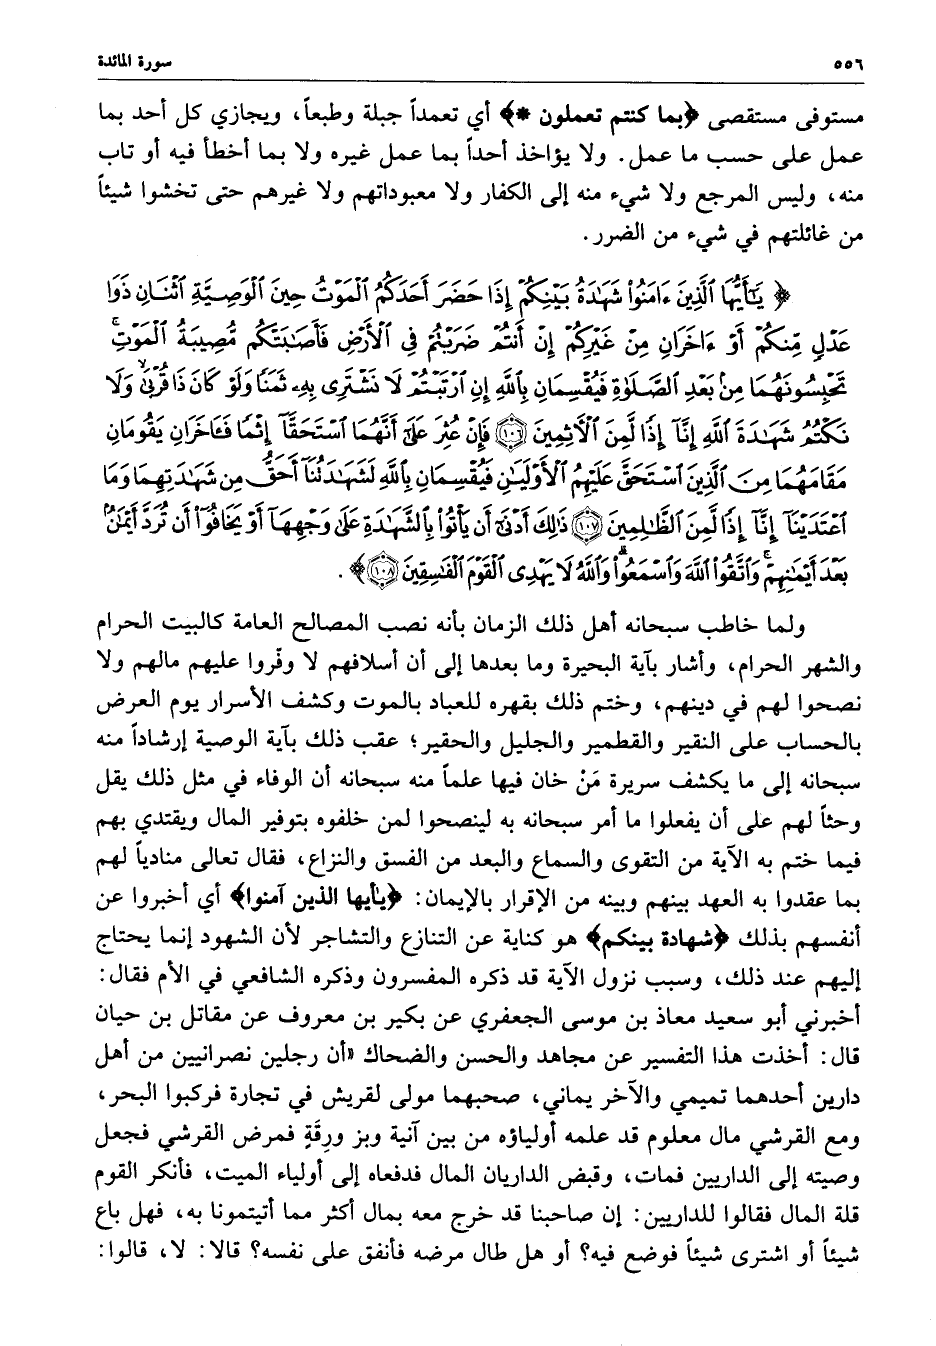 ٥٥٦ سورة المائدة
مستوفى مستقصى ﴿بما كنتم تعملون *﴾ أي تعمداً جبلة وطبعاً، ويجازي كل أحد بما
عمل على حسب ما عمل. ولا يؤاخذ أحداً بما عمل غيره ولا بما أخطأ فيه أو تاب
منه، وليس المرجع ولا شيء منه إلى الكفار ولا معبوداتهم ولا غيرهم حتى تخشوا شيئاً
من غائلتهم في شيء من الضرر.
﴿ يَٰٓأَيُّهَا ٱلَّذِينَ ءَامَنُوا۟ شَهَٰدَةُ بَيْنِكُمْ إِذَا حَضَرَ أَحَدَكُمُ ٱلْمَوْتُ حِينَ ٱلْوَصِيَّةِ ٱثْنَانِ ذَوَا
عَدْلٍ مِّنكُمْ أَوْ ءَاخَرَانِ مِنْ غَيْرِكُمْ إِنْ أَنتُمْ ضَرَبْتُمْ فِى ٱلْأَرْضِ فَأَصَٰبَتْكُم مُّصِيبَةُ ٱلْمَوْتِ ۚ
تَحْبِسُونَهُمَا مِنۢ بَعْدِ ٱلصَّلَوٰةِ فَيُقْسِمَانِ بِٱللَّهِ إِنِ ٱرْتَبْتُمْ لَا نَشْتَرِى بِهِۦ ثَمَنًا وَلَوْ كَانَ ذَا قُرْبَىٰ ۙ وَلَا
نَكْتُمُ شَهَٰدَةَ ٱللَّهِ إِنَّآ إِذًا لَّمِنَ ٱلْءَاثِمِينَ ١٠٦ فَإِنْ عُثِرَ عَلَىٰٓ أَنَّهُمَا ٱسْتَحَقَّآ إِثْمًا فَـَٔاخَرَانِ يَقُومَانِ
مَقَامَهُمَا مِنَ ٱلَّذِينَ ٱسْتَحَقَّ عَلَيْهِمُ ٱلْأَوْلَيَٰنِ فَيُقْسِمَانِ بِٱللَّهِ لَشَهَٰدَتُنَآ أَحَقُّ مِن شَهَٰدَتِهِمَا وَمَا
ٱعْتَدَيْنَآ إِنَّآ إِذًا لَّمِنَ ٱلظَّٰلِمِينَ ١٠٧ ذَٰلِكَ أَدْنَىٰٓ أَن يَأْتُوا۟ بِٱلشَّهَٰدَةِ عَلَىٰ وَجْهِهَآ أَوْ يَخَافُوٓا۟ أَن تُرَدَّ أَيْمَٰنٌۢ
بَعْدَ أَيْمَٰنِهِمْ ۗ وَٱتَّقُوا۟ ٱللَّهَ وَٱسْمَعُوا۟ ۗ وَٱللَّهُ لَا يَهْدِى ٱلْقَوْمَ ٱلْفَٰسِقِينَ ١٠٨ ﴾.
ولما خاطب سبحانه أهل ذلك الزمان بأنه نصب المصالح العامة كالبيت الحرام
والشهر الحرام، وأشار بآية البحيرة وما بعدها إلى أن أسلافهم لا وفّروا عليهم مالهم ولا
نصحوا لهم في دينهم، وختم ذلك بقهره للعباد بالموت وكشف الأسرار يوم العرض
بالحساب على النقير والقطمير والجليل والحقير؛ عقب ذلك بآية الوصية إرشاداً منه
سبحانه إلى ما يكشف سريرة مَنْ خان فيها علماً منه سبحانه أن الوفاء في مثل ذلك يقل
وحثاً لهم على أن يفعلوا ما أمر سبحانه به لينصحوا لمن خلفوه بتوفير المال ويقتدي بهم
فيما ختم به الآية من التقوى والسماع والبعد من الفسق والنزاع، فقال تعالى منادياً لهم
بما عقدوا به العهد بينهم وبينه من الإقرار بالإيمان: ﴿يأيها الذين آمنوا﴾ أي أخبروا عن
أنفسهم بذلك ﴿شهادة بينكم﴾ هو كناية عن التنازع والتشاجر لأن الشهود إنما يحتاج
إليهم عند ذلك، وسبب نزول الآية قد ذكره المفسرون وذكره الشافعي في الأم فقال:
أخبرني أبو سعيد معاذ بن موسى الجعفري عن بكير بن معروف عن مقاتل بن حيان
قال: أخذت هذا التفسير عن مجاهد والحسن والضحاك «أن رجلين نصرانيين من أهل
دارين أحدهما تميمي والآخر يماني، صحبهما مولى لقريش في تجارة فركبوا البحر،
ومع القرشي مال معلوم قد علمه أولياؤه من بين آنية وبز ورِقَةٍ فمرض القرشي فجعل
وصيته إلى الداريين فمات، وقبض الداريان المال فدفعاه إلى أولياء الميت، فأنكر القوم
قلة المال فقالوا للداريين: إن صاحبنا قد خرج معه بمال أكثر مما أتيتمونا به، فهل باع
شيئاً أو اشترى شيئاً فوضع فيه؟ أو هل طال مرضه فأنفق على نفسه؟ قالا: لا، قالوا: